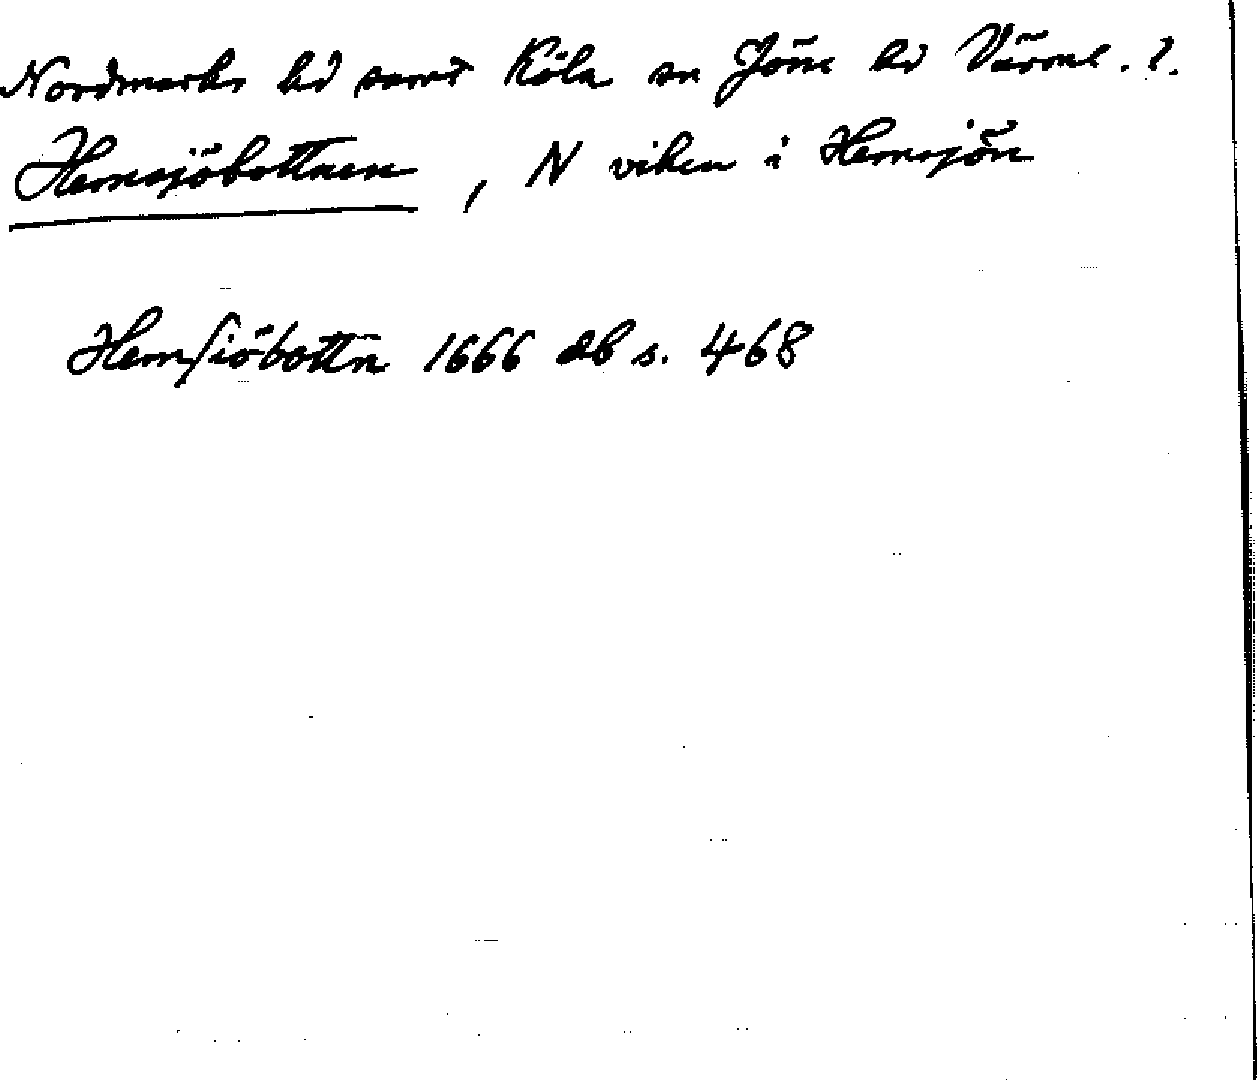 Nordmarks hd samt Köla sn Jösse hd Värml. l.
Hemsjöbottnen, N viken i Hemsjön
Hemsiöbottn 1666 db s. 468